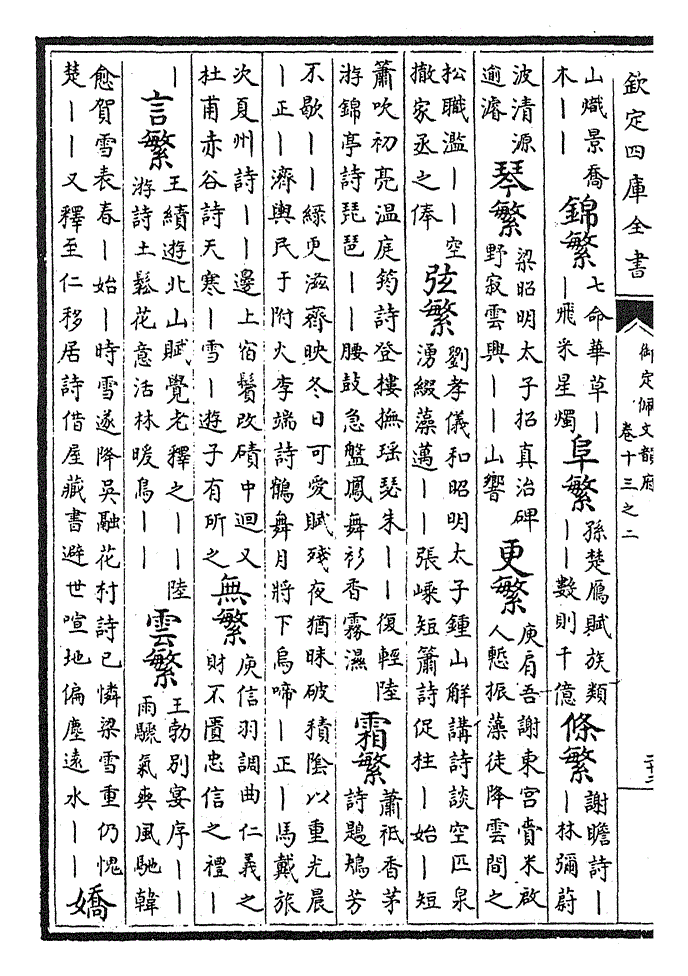 欽定四庫全書
御定佩文韻府
卷十三之二
山熾景喬
木丨丨
錦繁
七命華草丨
丨飛米星燭
阜繁
孫楚鴈賦族類
丨丨數則千億
條繁
謝瞻詩丨
丨林彌蔚
波清源
逾濬
琴繁
梁昭明太子招真治碑
野寂雲興丨丨山響
更繁
庾肩吾謝東宮賚米啟
人慙振藻徒降雲間之
松職濫丨丨空
撤家丞之俸
弦繁
劉孝儀和昭明太子鍾山解講詩談空匹泉
湧綴藻邁丨丨張嵊短簫詩促柱丨始丨短
簫吹初亮溫庭筠詩登樓撫瑤瑟朱丨丨復輕陸
游錦亭詩琵琶丨丨腰鼓急盤鳳舞衫香霧濕
霜繁
蕭祗香茅
詩鶗鴂芳
不歇丨丨綠更滋齊映冬日可愛賦殘夜猶昧破積陰以重光晨
丨正丨濟輿民于附火李端詩鶴舞月將下烏啼丨正丨馬戴旅
次夏州詩丨丨邊上宿鬢改磧中迴又
杜甫赤谷詩天寒丨雪丨遊子有所之
無繁
庾信羽調曲仁義之
財不匱忠信之禮丨
丨
言繁
王績遊北山賦覺老釋之丨丨陸
游詩土鬆花意活林暖鳥丨丨
雲繁
王勃別宴序丨丨
雨驟氣爽風馳韓
愈賀雪表春丨始丨時雪遂降吳融花村詩已憐梁雪重仍愧
楚丨丨又釋至仁移居詩借屋藏書避世喧地偏塵遠水丨丨
嬌